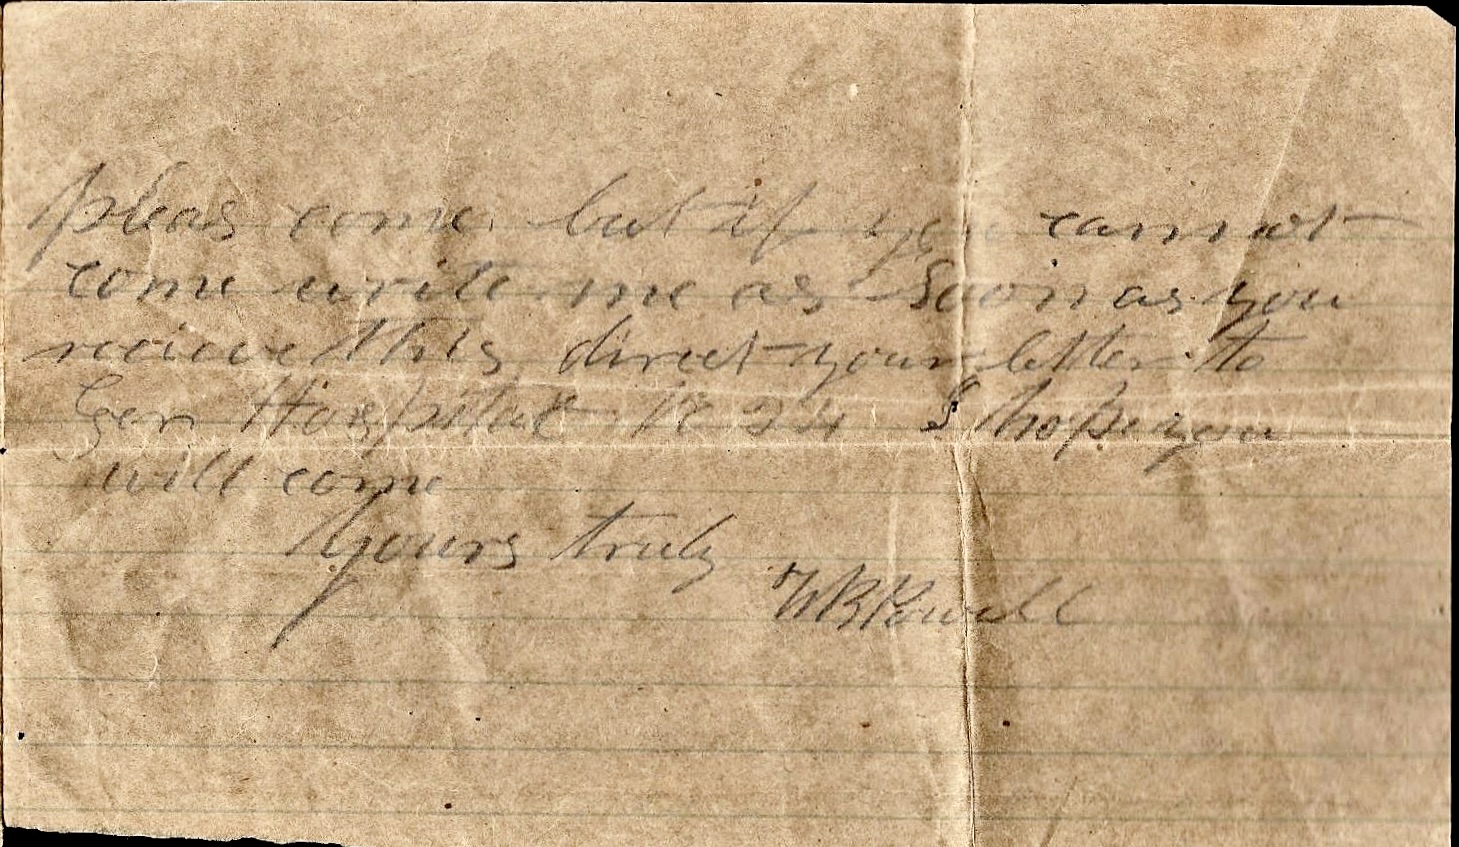 pleas come but if you cannot
come write me as Soon as you
recieve this direct your letter to
Gen Hospital No 24 I hope you
will come
yours truly
W B Powell